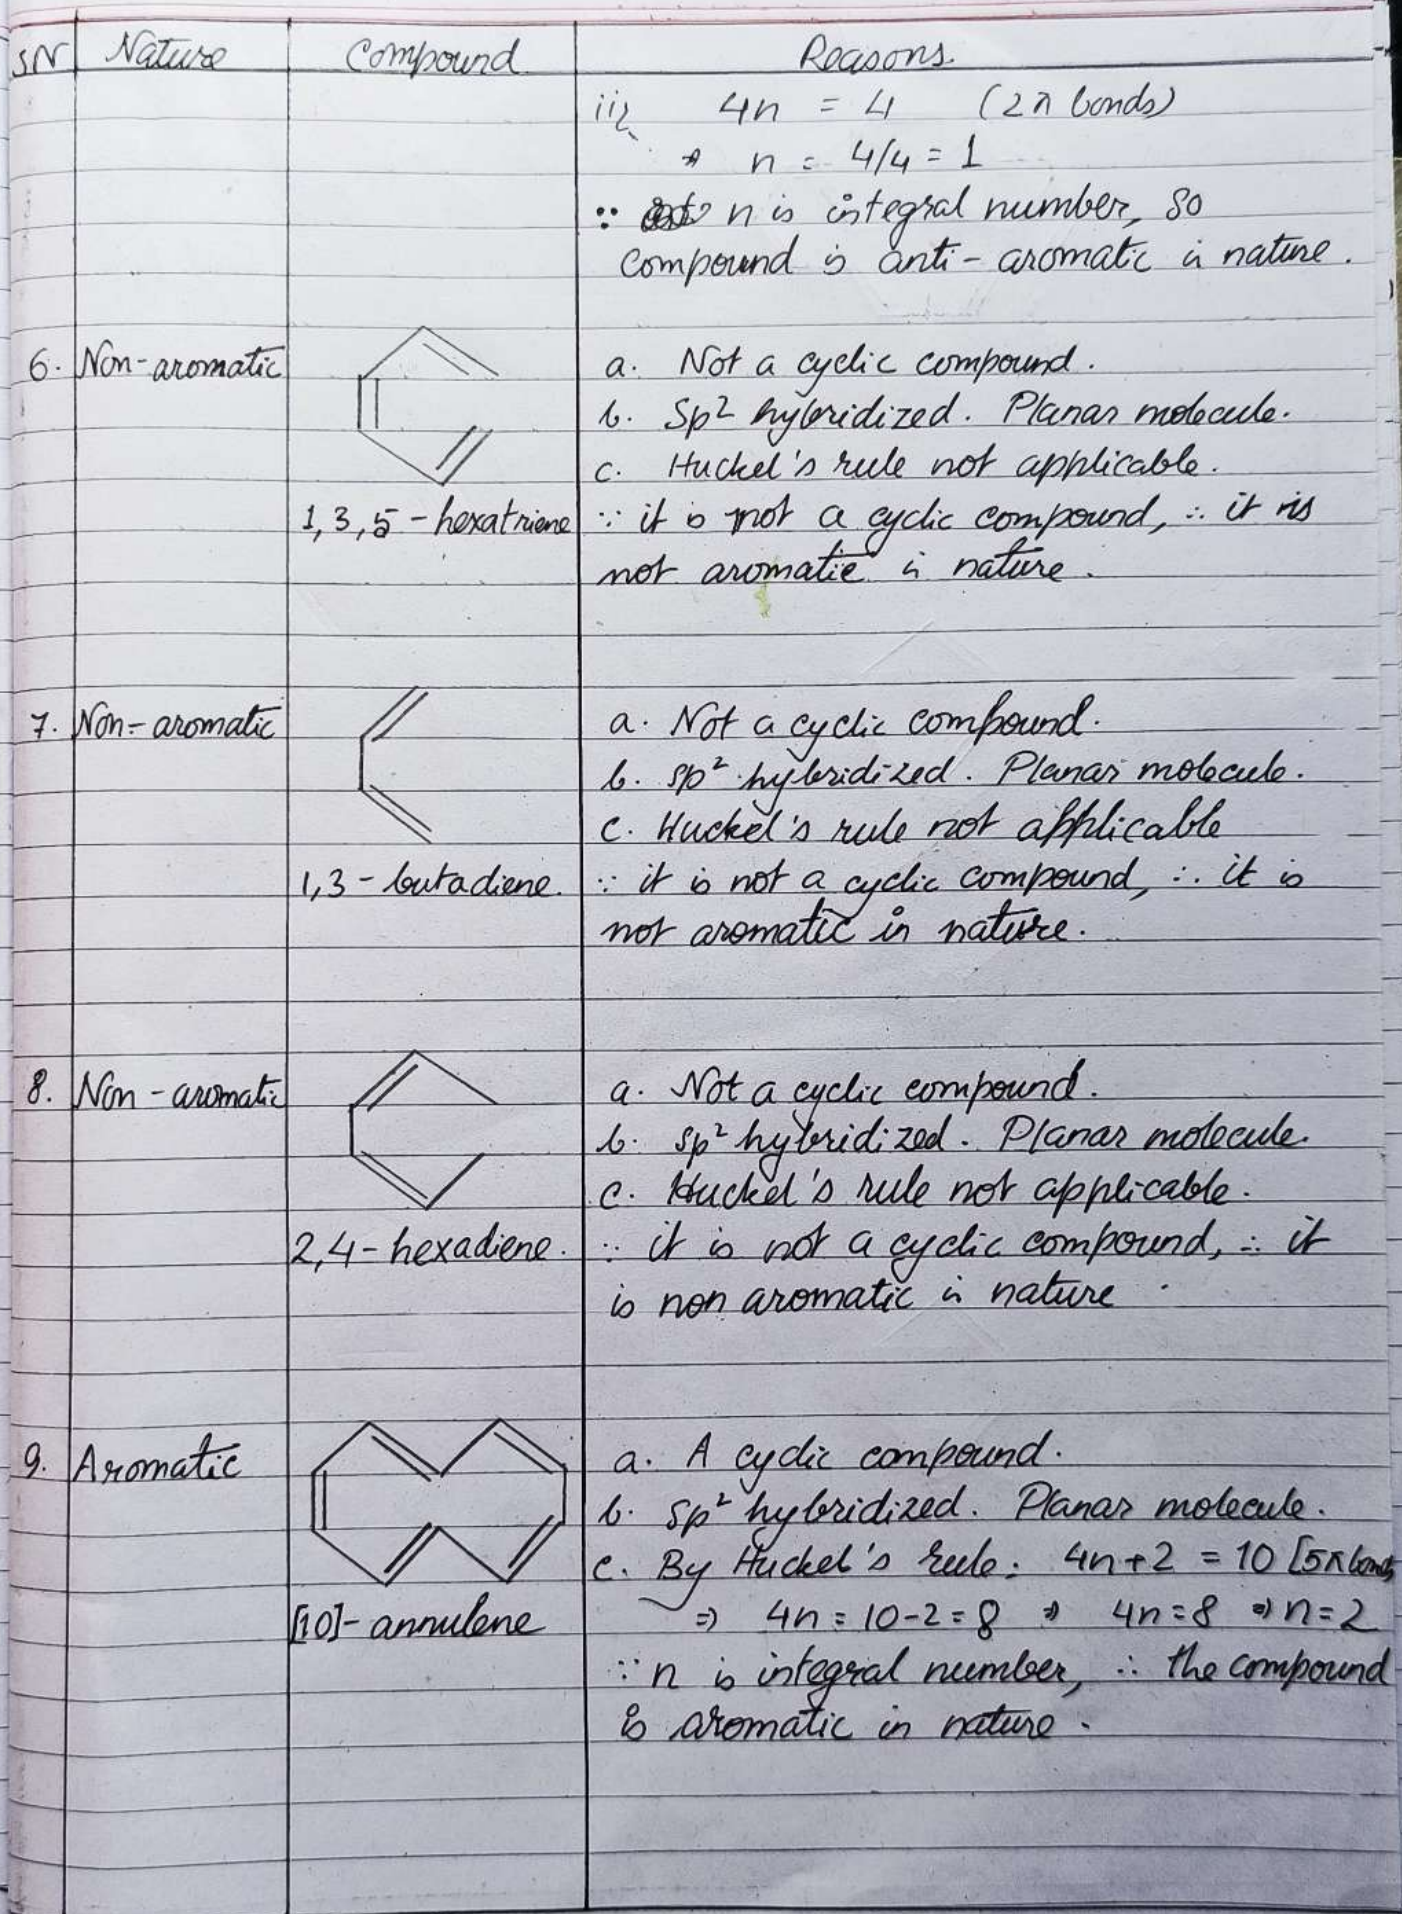 SN Nature Compound Reasons.
iii 4n = 4 (2π bonds)
⇒ n = 4/4 = 1
∵ n is integral number, so
compound is anti-aromatic in nature.
6. Non-aromatic a. Not a cyclic compound.
b. Sp2 hybridized. Planar molecule.
c. Huckel's rule not applicable.
1,3,5-hexatriene ∵ it is not a cyclic compound, ∴ it is
not aromatic in nature.
7. Non-aromatic a. Not a cyclic compound.
b. sp² hybridized. Planar molecule.
c. Huckel's rule not applicable
1,3-butadiene. ∵ it is not a cyclic compound, ∴ it is
not aromatic in nature.
8. Non-aromatic a. Not a cyclic compound.
b. sp² hybridized. Planar molecule.
c. Huckel's rule not applicable.
2,4-hexadiene. ∵ it is not a cyclic compound, ∴ it
is non aromatic in nature
9. Aromatic a. A cyclic compound.
b. sp² hybridized. Planar molecule.
c. By Huckel's rule: 4n+2 = 10 [5π bonds
[10]-annulene ⇒ 4n = 10-2 = 8 ⇒ 4n = 8 ⇒ n = 2
∵ n is integral number, ∴ the compound
is aromatic in nature.